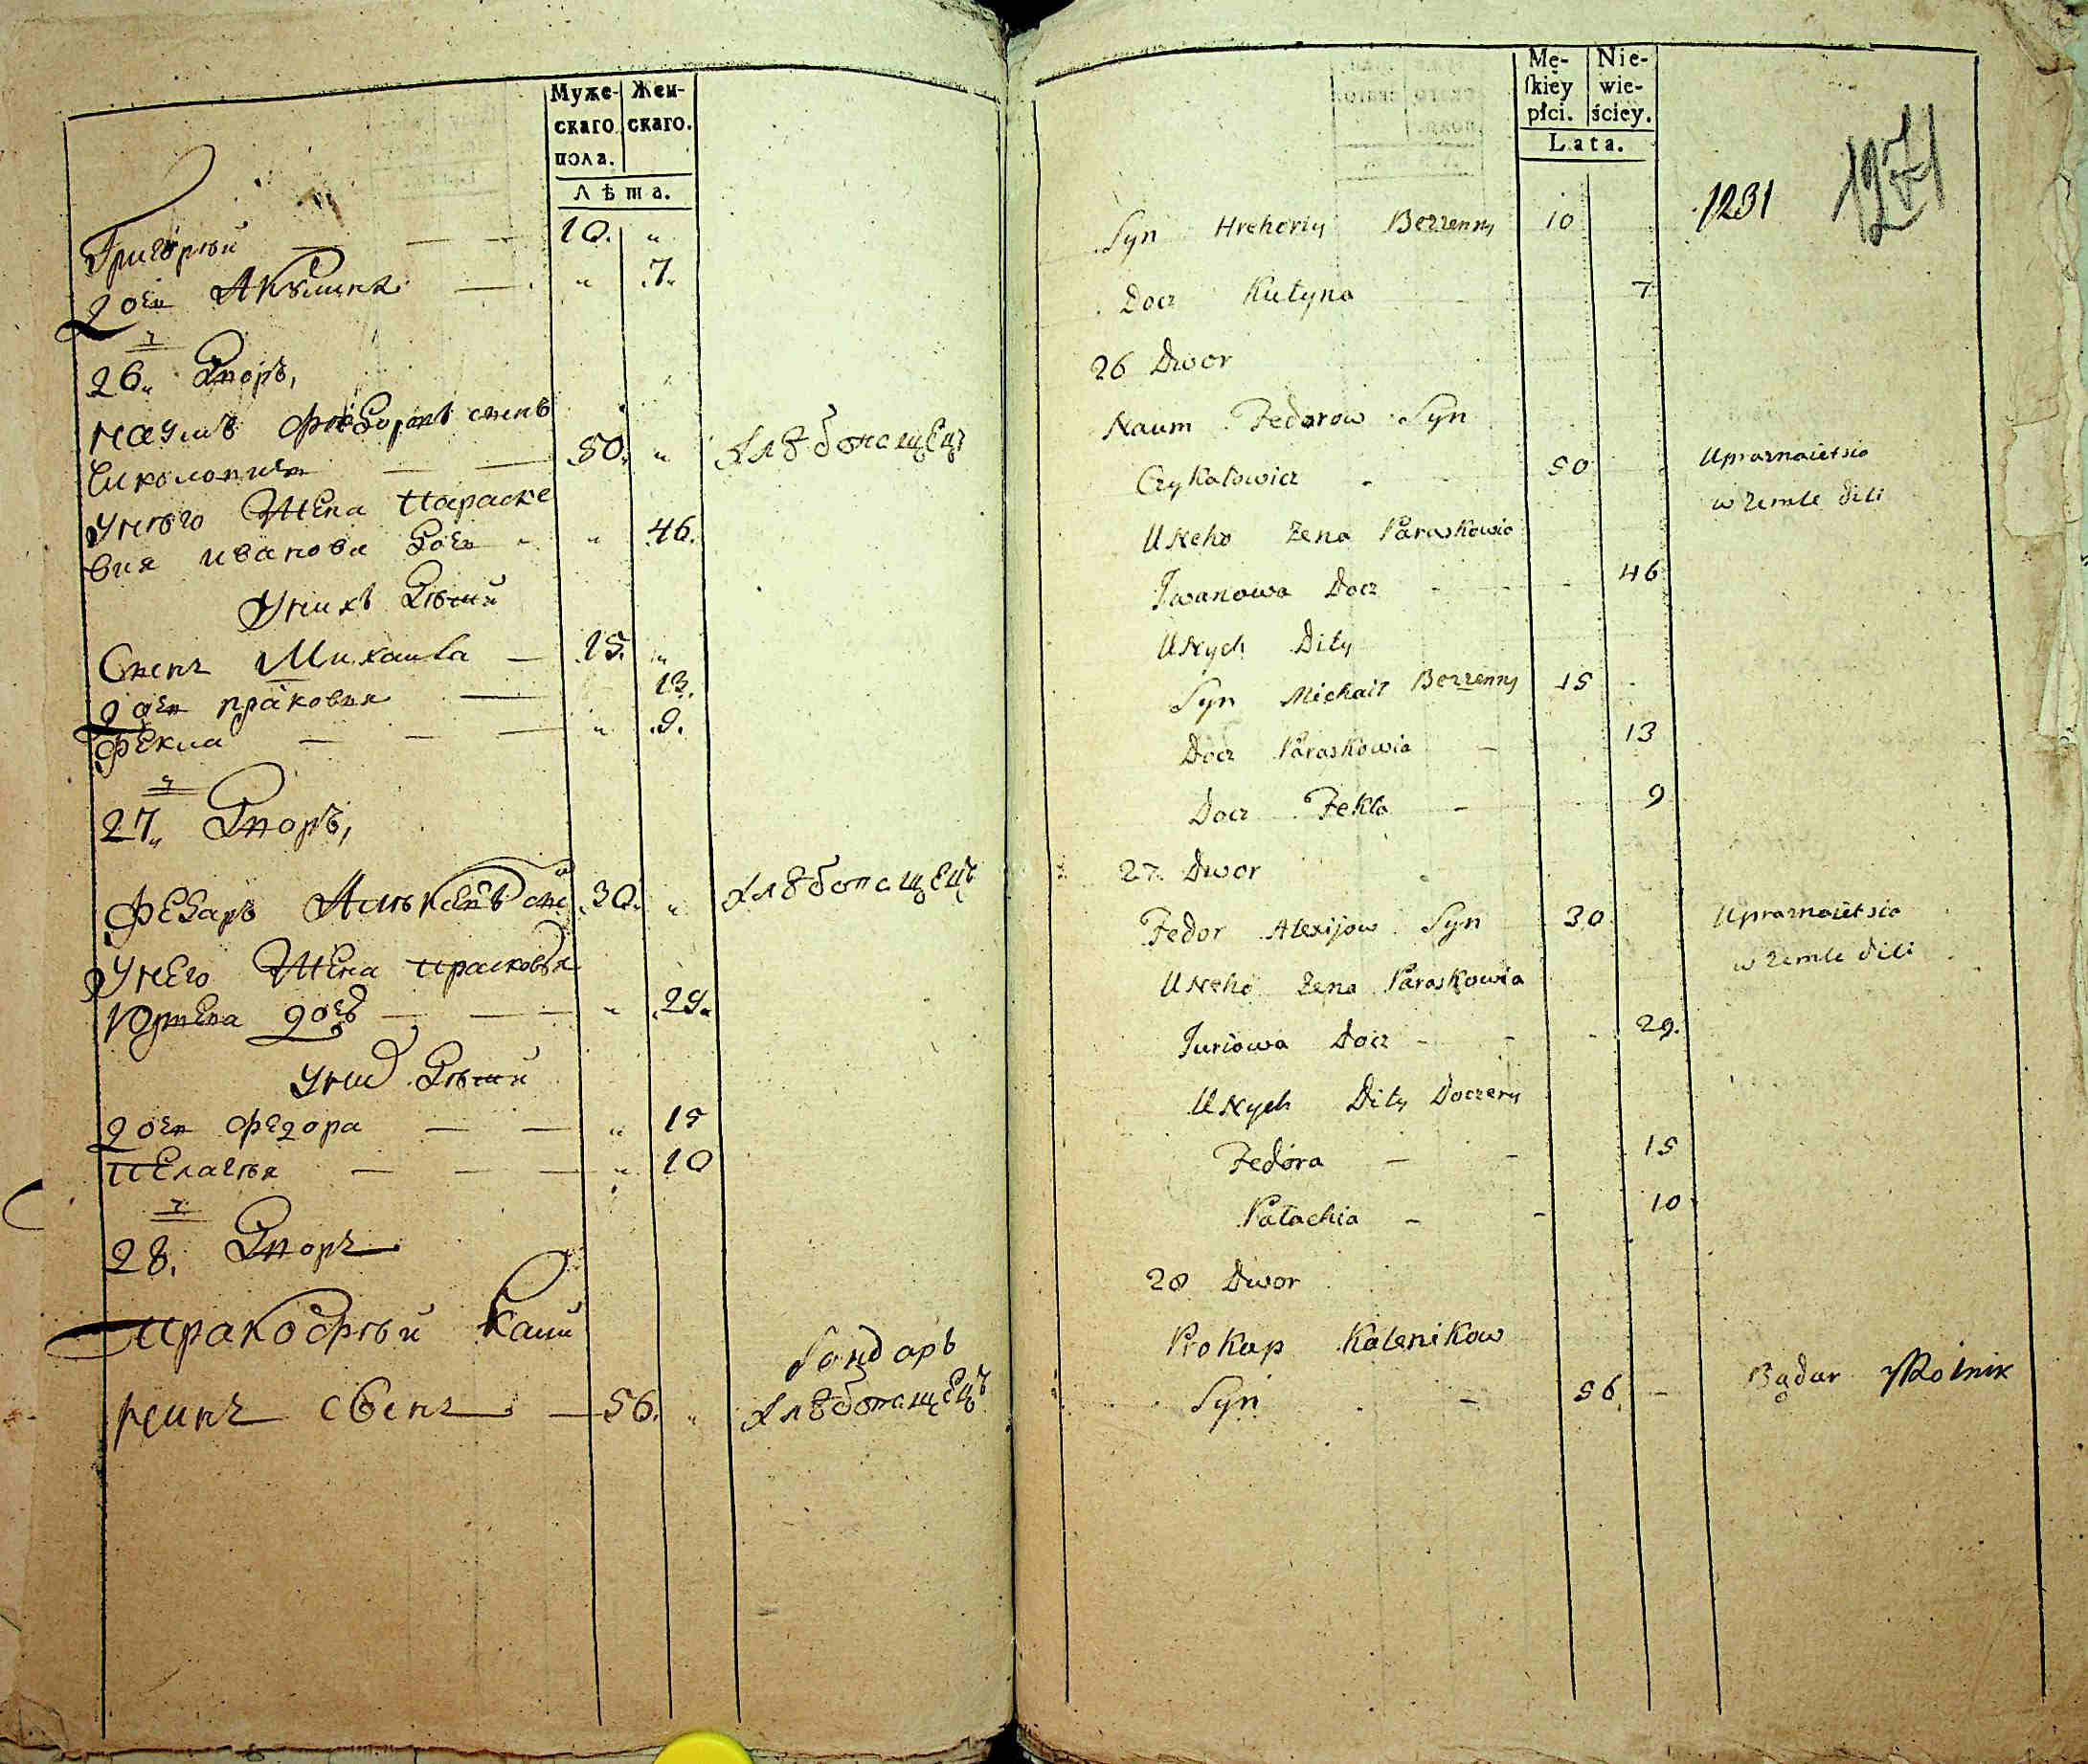 Муже- Жен-
скаго скаго.
пола.
Лѣта.
Григорий — — — 10. "
дочь Акулина — " 7.
26. Дворъ,
Наумъ Федоровъ сынъ
Чиколовичъ — — 50. " Хлѣбопашецъ
У него жена Параске
вия Иванова дочь " 46.
У нихъ дѣти
Сынъ Михаила — 15. "
дочь праковья — 13.
Фекла — — — " 9.
27. Дворъ,
Федаръ сын 30. " Хлѣбопашецъ
У него жена прасковья
Юрьева дочь — — — " 29.
У них дѣти
дочь Федора — — " 15
Пелагия — — — " 10
28. Дворъ
Пракофий Кали
нинъ сынъ — 56. " бондаръ
Хлѣбопашецъ
Mę- Nie-
skiey wie-
płci. ściey.
Lata.
1231
1271
Syn Hrehoriy Bezzenny 10
Docz Kułyna 7
26 Dwor
Naum Fedorow Syn
Czykałowicz - - 50 Upraznaietsia
w zemle dili
U Neho Zena Paraskowia
Iwanowa Docz - - 46
U Nych Dity
Syn Michaił Bezzenny 15
Docz Paraskowia - 13
Docz Fekła - 9
27 Dwor
Fedor Alexijow Syn 30 Upraznaietsia
w zemle dili
U Neho Zena Paraskowia
Juriowa Docz - - - 29.
U Nych Dity Doczery
Fedora - - 15
Pałachia - - 10
28 Dwor
Prokap Kalenikow
Syn - - 56. - Bądar Rolnik